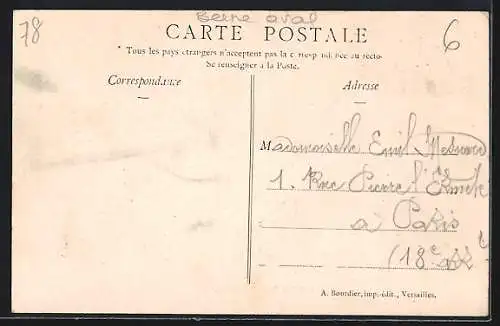 78
6
CARTE POSTALE
* Tous les pays étrangers n'acceptent pas la correspondance au recto
Se renseigner à la Poste.
Correspondance
Adresse
Mademoiselle Emil
1. Rue Pierre l'Ermite
à Paris
(18e
A. Bourdier, imp.-édit., Versailles.